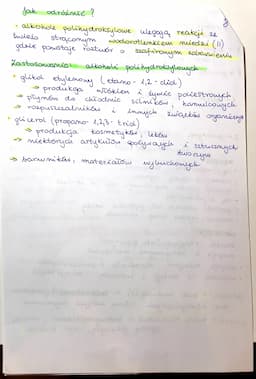 Jak odróżnić?
• alkohole polihydroksylowe ulegają reakcji ze
świeżo strąconym wodorotlenkiem miedzi (II)
gdzie powstaje roztwór o szafirowym zabarwieniu
Zastosowanie alkoholi polihydroksylowych
• glikol etylenowy (etano-1,2-diol)
→ produkcja włókien i żywic poliestrowych
→ płynów do chłodnic silników, hamulcowych
→ rozpuszczalników i innych związków organicznych
• glicerol (propano-1,2,3-triol)
→ produkcja kosmetyków, leków
→ niektórych artykułów spożywczych i sztucznych
tworzyw
→ barwników, materiałów wybuchowych